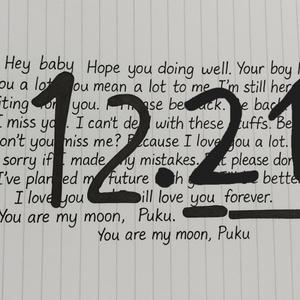 Hey baby Hope you doing well. Your boy
ou a lot. ou mean a lot to me. I'm still her
iting for you. Please be back. e bac
I miss yo. I can't de with these tuffs. Be
on't you miss me? Because I love you a lot.
sorry if I made ny mistakes. But please don
I've planned my future with y bette
I love you ill love you forever.
You are my moon, Puku.
You are my moon, Puku
12.21